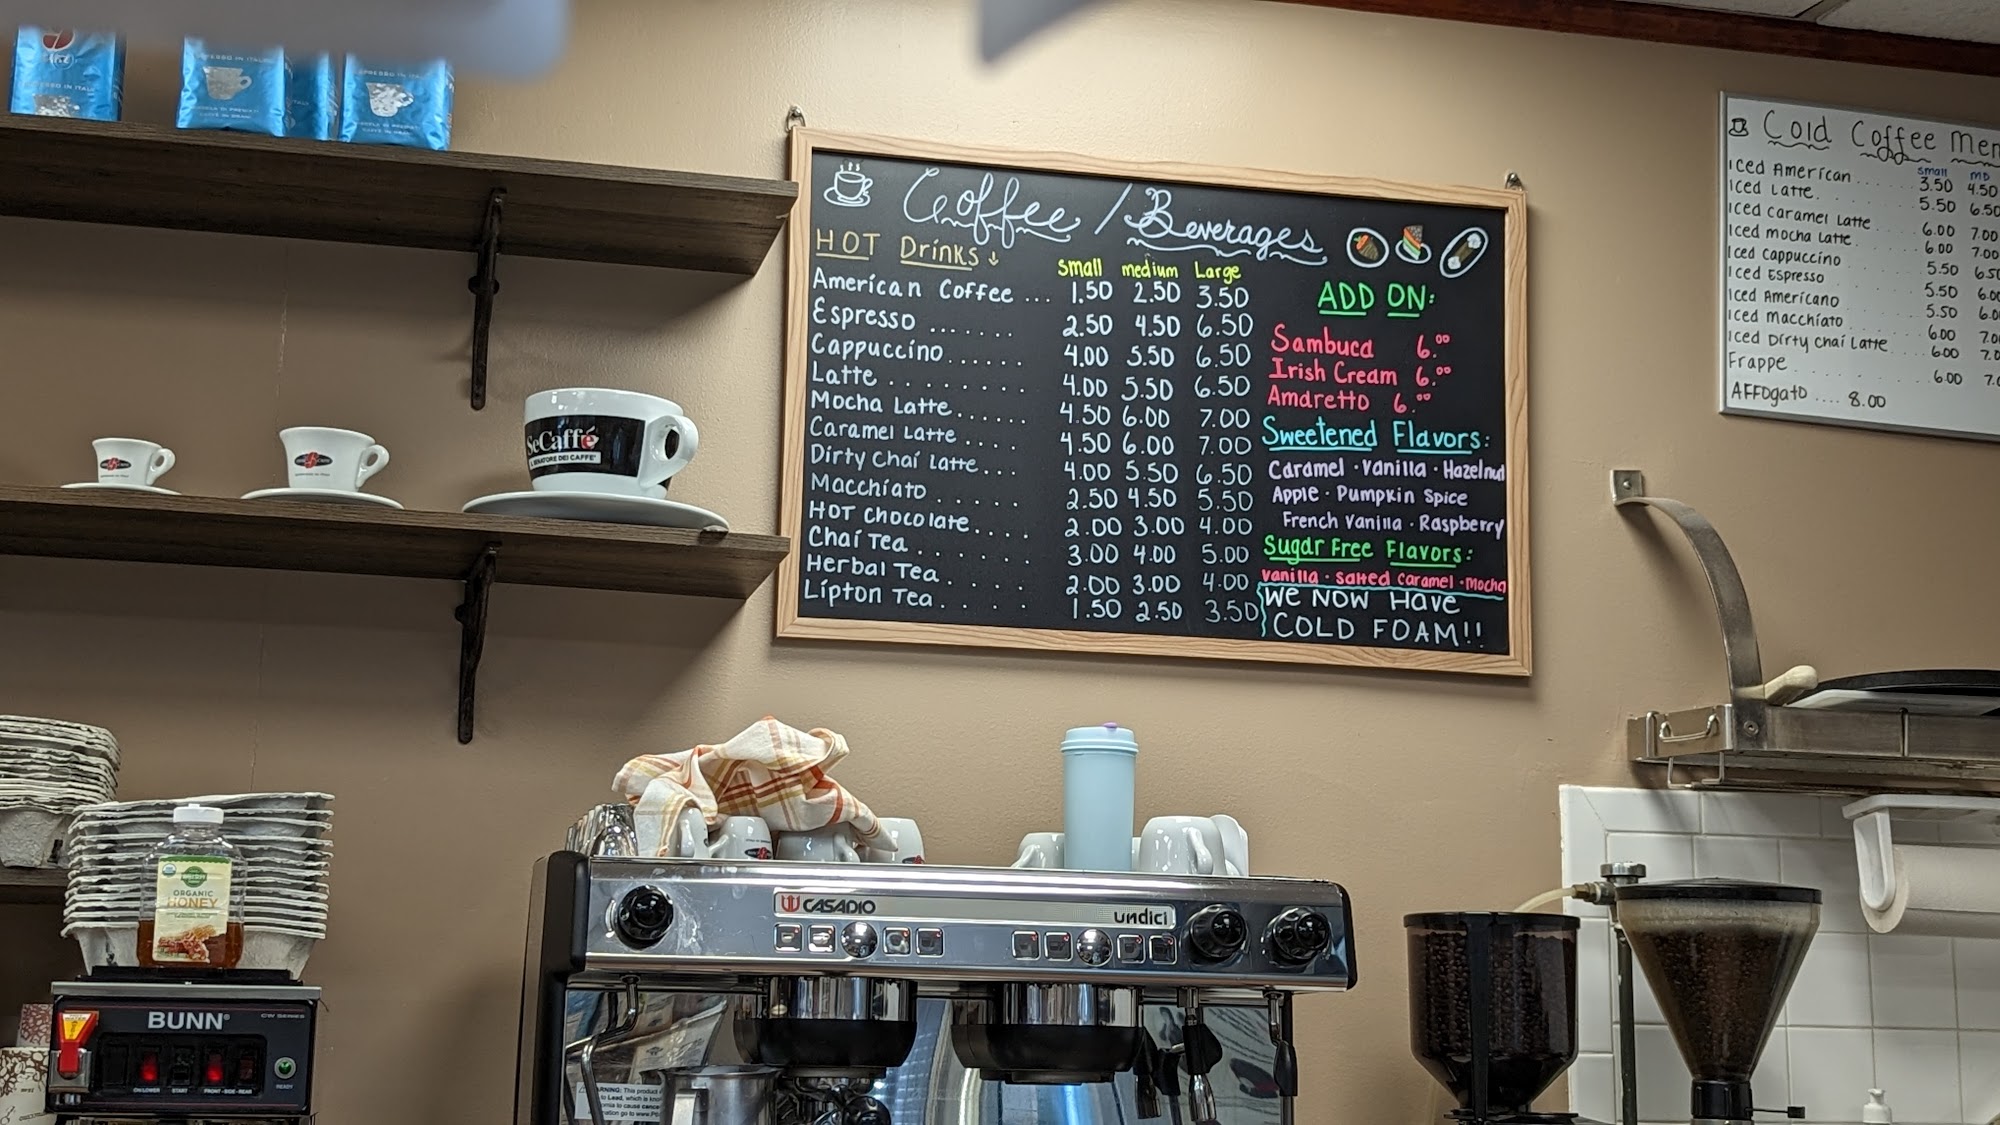 Coffee / Beverages
HOT Drinks
small medium Large
American Coffee ... 1.50 2.50 3.50
Espresso ....... 2.50 4.50 6.50
Cappuccino...... 4.00 5.50 6.50
Latte ........ 4.00 5.50 6.50
Mocha Latte..... 4.50 6.00 7.00
Caramel Latte .... 4.50 6.00 7.00
Dirty Chai Latte... 4.00 5.50 6.50
Macchiato ..... 2.50 4.50 5.50
HOT chocolate.... 2.00 3.00 4.00
Chai Tea ...... 3.00 4.00 5.00
Herbal Tea..... 2.00 3.00 4.00
Lipton Tea..... 1.50 2.50 3.50
ADD ON:
Sambuca 6.00
Irish Cream 6.00
Amaretto 6.00
Sweetened Flavors:
Caramel · Vanilla · Hazelnut
Apple · Pumpkin Spice
French Vanilla · Raspberry
Sugar Free Flavors:
Vanilla · Salted Caramel · Mocha
WE NOW HAVE
COLD FOAM!!
Cold Coffee Men
small MD
Iced American ...... 3.50 4.50
Iced Latte. 5.50 6.50
Iced Caramel Latte 6.00 7.00
Iced mocha Latte 6.00 7.00
Iced Cappuccino 5.50 6.50
Iced Espresso 5.50 6.0
Iced Americano 5.50 6.0
Iced Macchiato 6.00 7.0
Iced Dirty Chai Latte 6.00 7.0
Frappe 6.00 7.0
Affogato .... 8.00
SeCaffé
IL SENATORE DEI CAFFE'
ORGANIC
HONEY
BUNN®
CW SERIES
ON/LOWER START FRONT - SIDE - REAR
READY
CASADIO undici
WARNING: This product